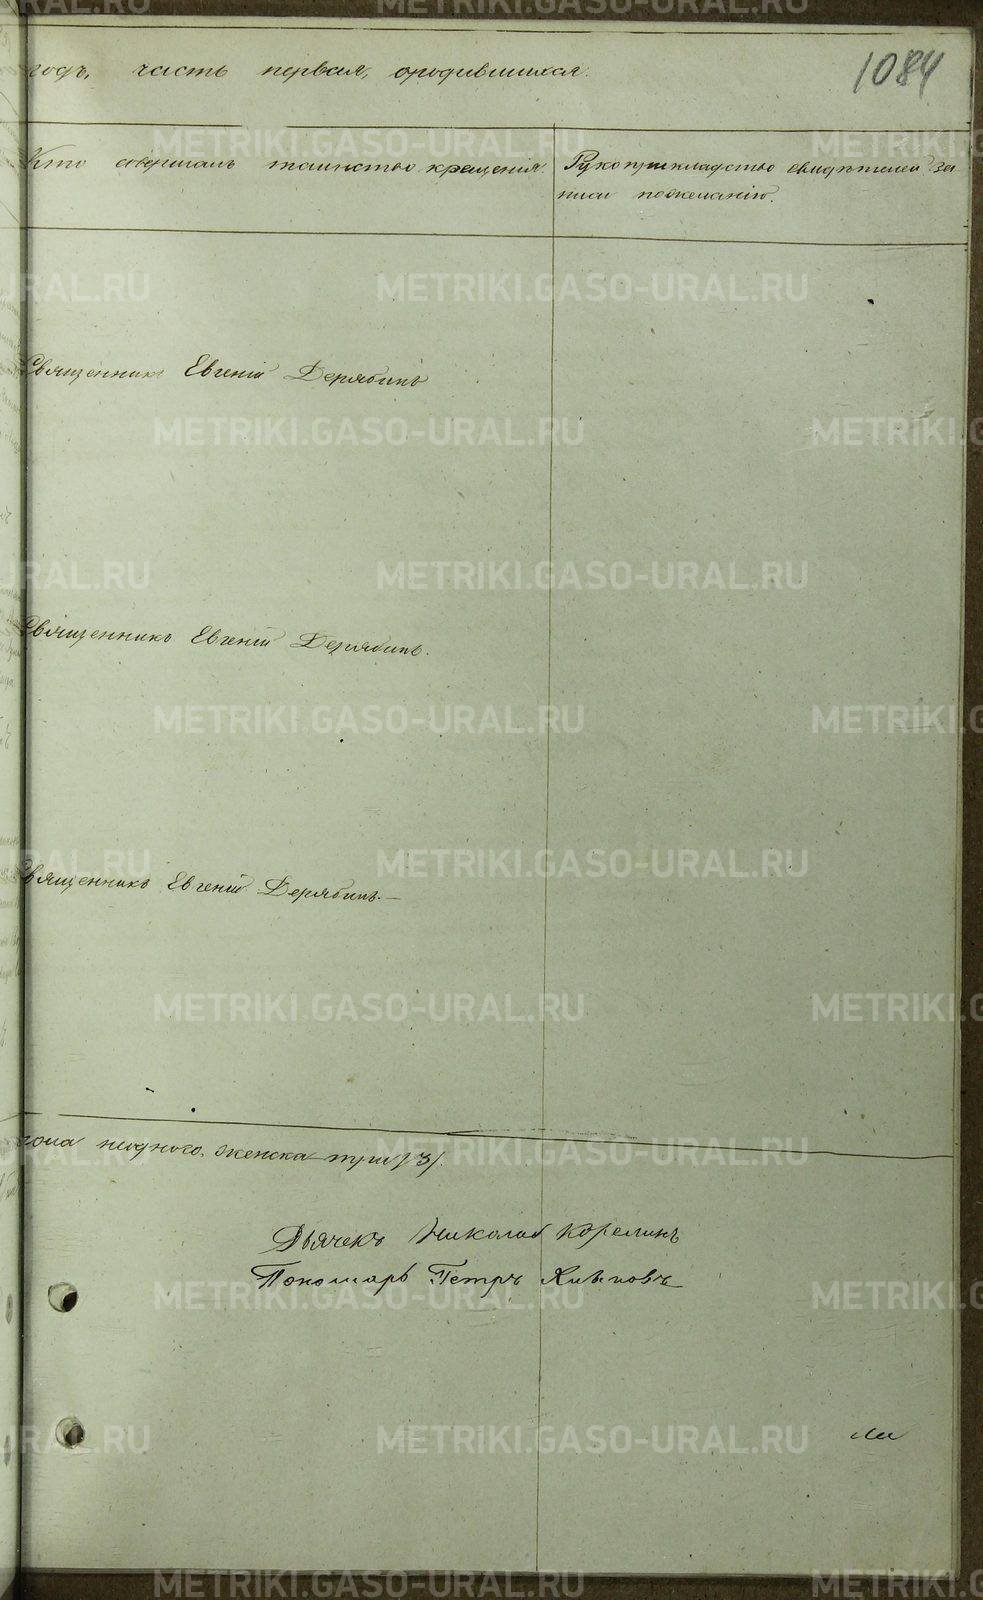 годъ, часть первая, ородившихся.
1084
Кто совершалъ таинство крещенія.
Рукоприкладство свидѣтелей за
писи пожеланію.
Священникъ Евгеній Дерябинъ
Священникъ Евгеній Дерябинъ.
Священникъ Евгеній Дерябинъ.—
пола ниодного, женска три /3/.
Дьячекъ Николай Корелинъ
Пономарь Петръ
METRIKI.GASO-URAL.RU